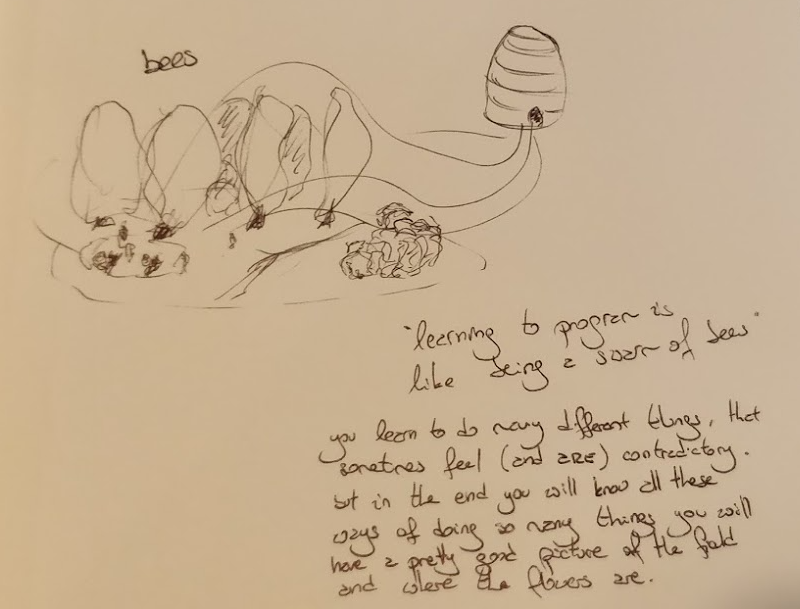 bees
"learning to program is
like being a swarm of bees"
you learn to do many different things, that
sometimes feel (and ARE) contradictory.
but in the end you will know all these
ways of doing so many things you will
have a pretty good picture of the field
and where the flowers are.